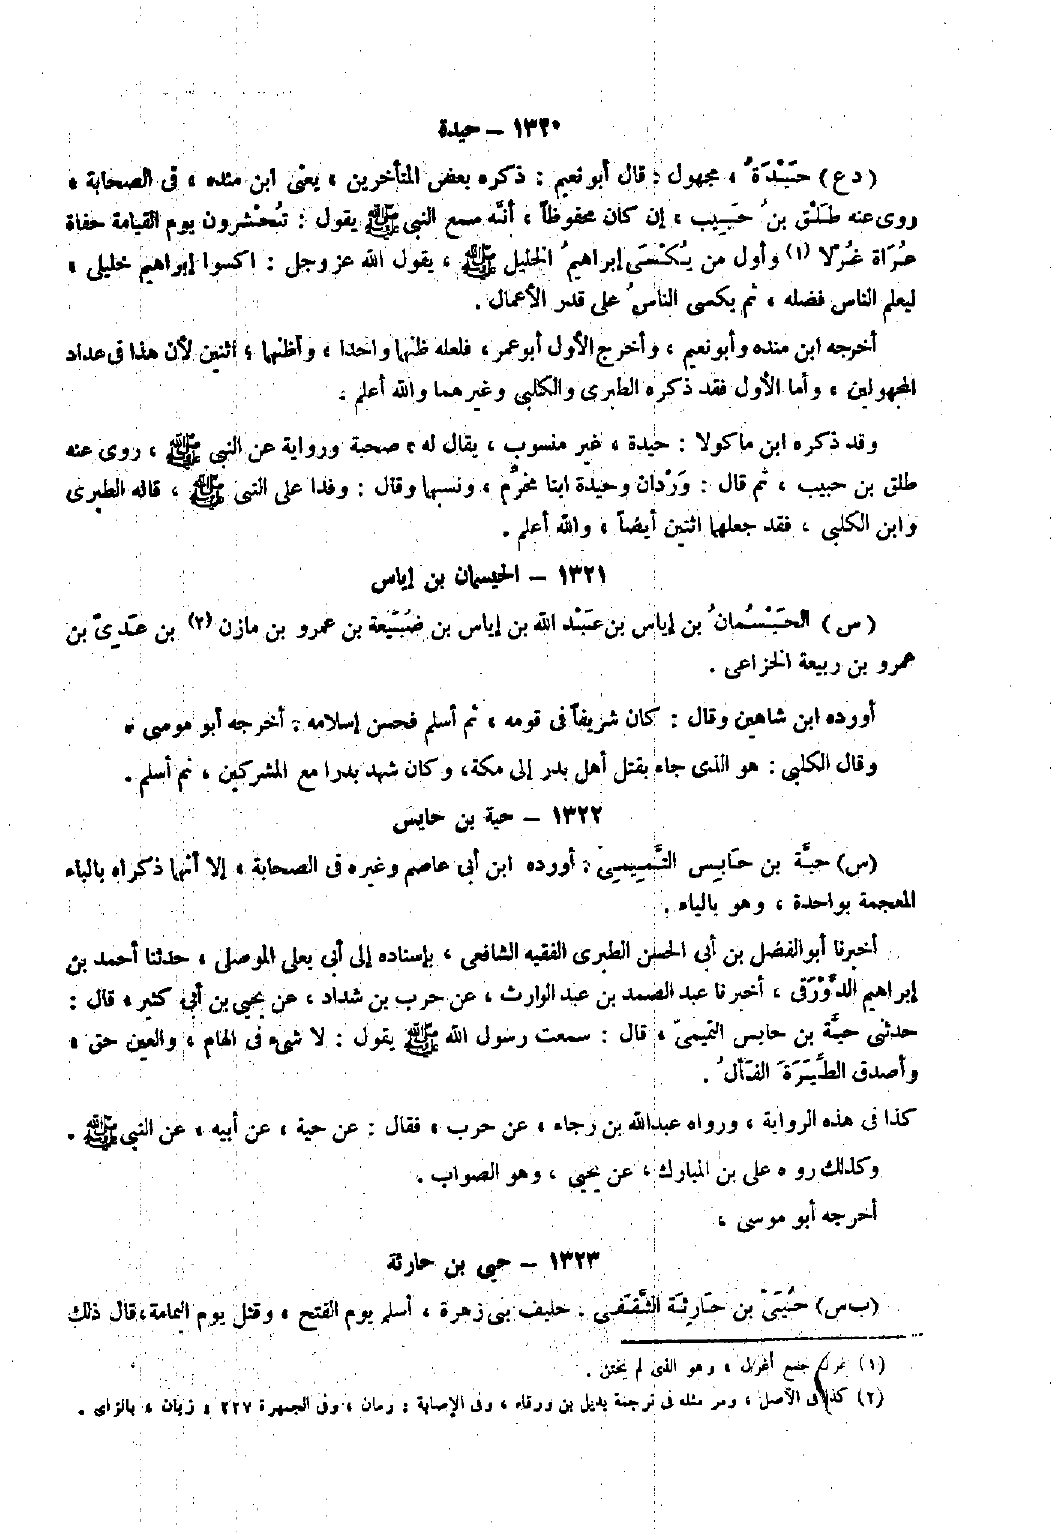 ١٣٢٠ – حيدة
(دع) حَيْدَةُ ، مجهول : قال أبو نعيم : ذكره بعض المتأخرين ، يعنى ابن منده ، فى الصحابة ،
روى عنه طَلْق بنُ حَبِيب ، إن كان محفوظاً ، أنَّه سمع النبي ﷺ يقول : تُحْشرون يوم القيامة حفاة
عُرَاة غُرْلا (١) وأول من يُكْسَى إبراهيمُ الخليل ﷺ ، يقول الله عز وجل : اكسوا إبراهيم خليلى ،
ليعلم الناس فضله ، ثم يكسى الناسُ على قدر الأعمال .
أخرجه ابن منده وأبو نعيم ، وأخرج الأول أبو عمر ، فلعله ظنها واحدا ، وأظنها ؛ اثنين لأن هذا فى عداد
المجهولين ، وأما الأول فقد ذكره الطبرى والكلبى وغيرهما والله أعلم .
وقد ذكره ابن ماكولا : حيدة ، غير منسوب ، يقال له ؛ صحبة ورواية عن النبى ﷺ ، روى عنه
طلق بن حبيب ، ثم قال : وَرْدان وحيدة ابنا مخرُّم ، ونسبها وقال : وفدا على النبى ﷺ ، قاله الطبرى
وابن الكلبى ، فقد جعلهما اثنين أيضاً ، والله أعلم .
١٣٢١ – الحيسمان بن إياس
(س) الحَيْسُمانُ بن إياس بن عبد الله بن إياس بن ضُبَيْعة بن عمرو بن مازن (٢) بن عَدِىّ بن
عمرو بن ربيعة الخزاعى .
أورده ابن شاهين وقال : كان شريفاً فى قومه ، ثم أسلم فحسن إسلامه : أخرجه أبو موسى ،
وقال الكلبى : هو الذى جاء بقتل أهل بدر إلى مكة، وكان شهد بدرا مع المشركين ، ثم أسلم .
١٣٢٢ – حية بن حابس
(س) حيَّة بن حَابِس التَّمِيمِىّ : أورده ابن أبى عاصم وغيره فى الصحابة ، إلا أنهما ذكراه بالباء
المعجمة بواحدة ، وهو بالياء .
أخبرنا أبو الفضل بن أبى الحسن الطبرى الفقيه الشافعى ، بإسناده إلى أبى يعلى الموصلى ، حدثنا أحمد بن
إبراهيم الدَّوْرَقى ، أخبرنا عبد الصمد بن عبد الوارث ، عن حرب بن شداد ، عن يحيى بن أبى كثير ، قال :
حدثنى حيَّة بن حابس التميمىّ ، قال : سمعت رسول الله ﷺ يقول : لا شىء فى الهام ، والعين حق ،
وأصدق الطِّيَرَة الفَأْلُ .
كذا فى هذه الرواية ، ورواه عبد الله بن رجاء ، عن حرب ، فقال : عن حية ، عن أبيه ، عن النبى ﷺ .
وكذلك رو ه على بن المبارك ، عن يحيى ، وهو الصواب .
أخرجه أبو موسى ،
١٣٢٣ – حيى بن حارثة
(ب س) حُيَىّ بن حَارِثَة الثَّقَفِى . حليف بنى زهرة ، أسلم يوم الفتح ، وقتل يوم اليمامة، قال ذلك
(١) غرل جمع أغرل ، وهو الذى لم يختن .
(٢) كذا فى الأصل ، ومر مثله فى ترجمة بديل بن ورقاء ، وفى الإصابة : زمان ، وفى الجمهرة ٢٢٧ : زبان ، بالزاى .